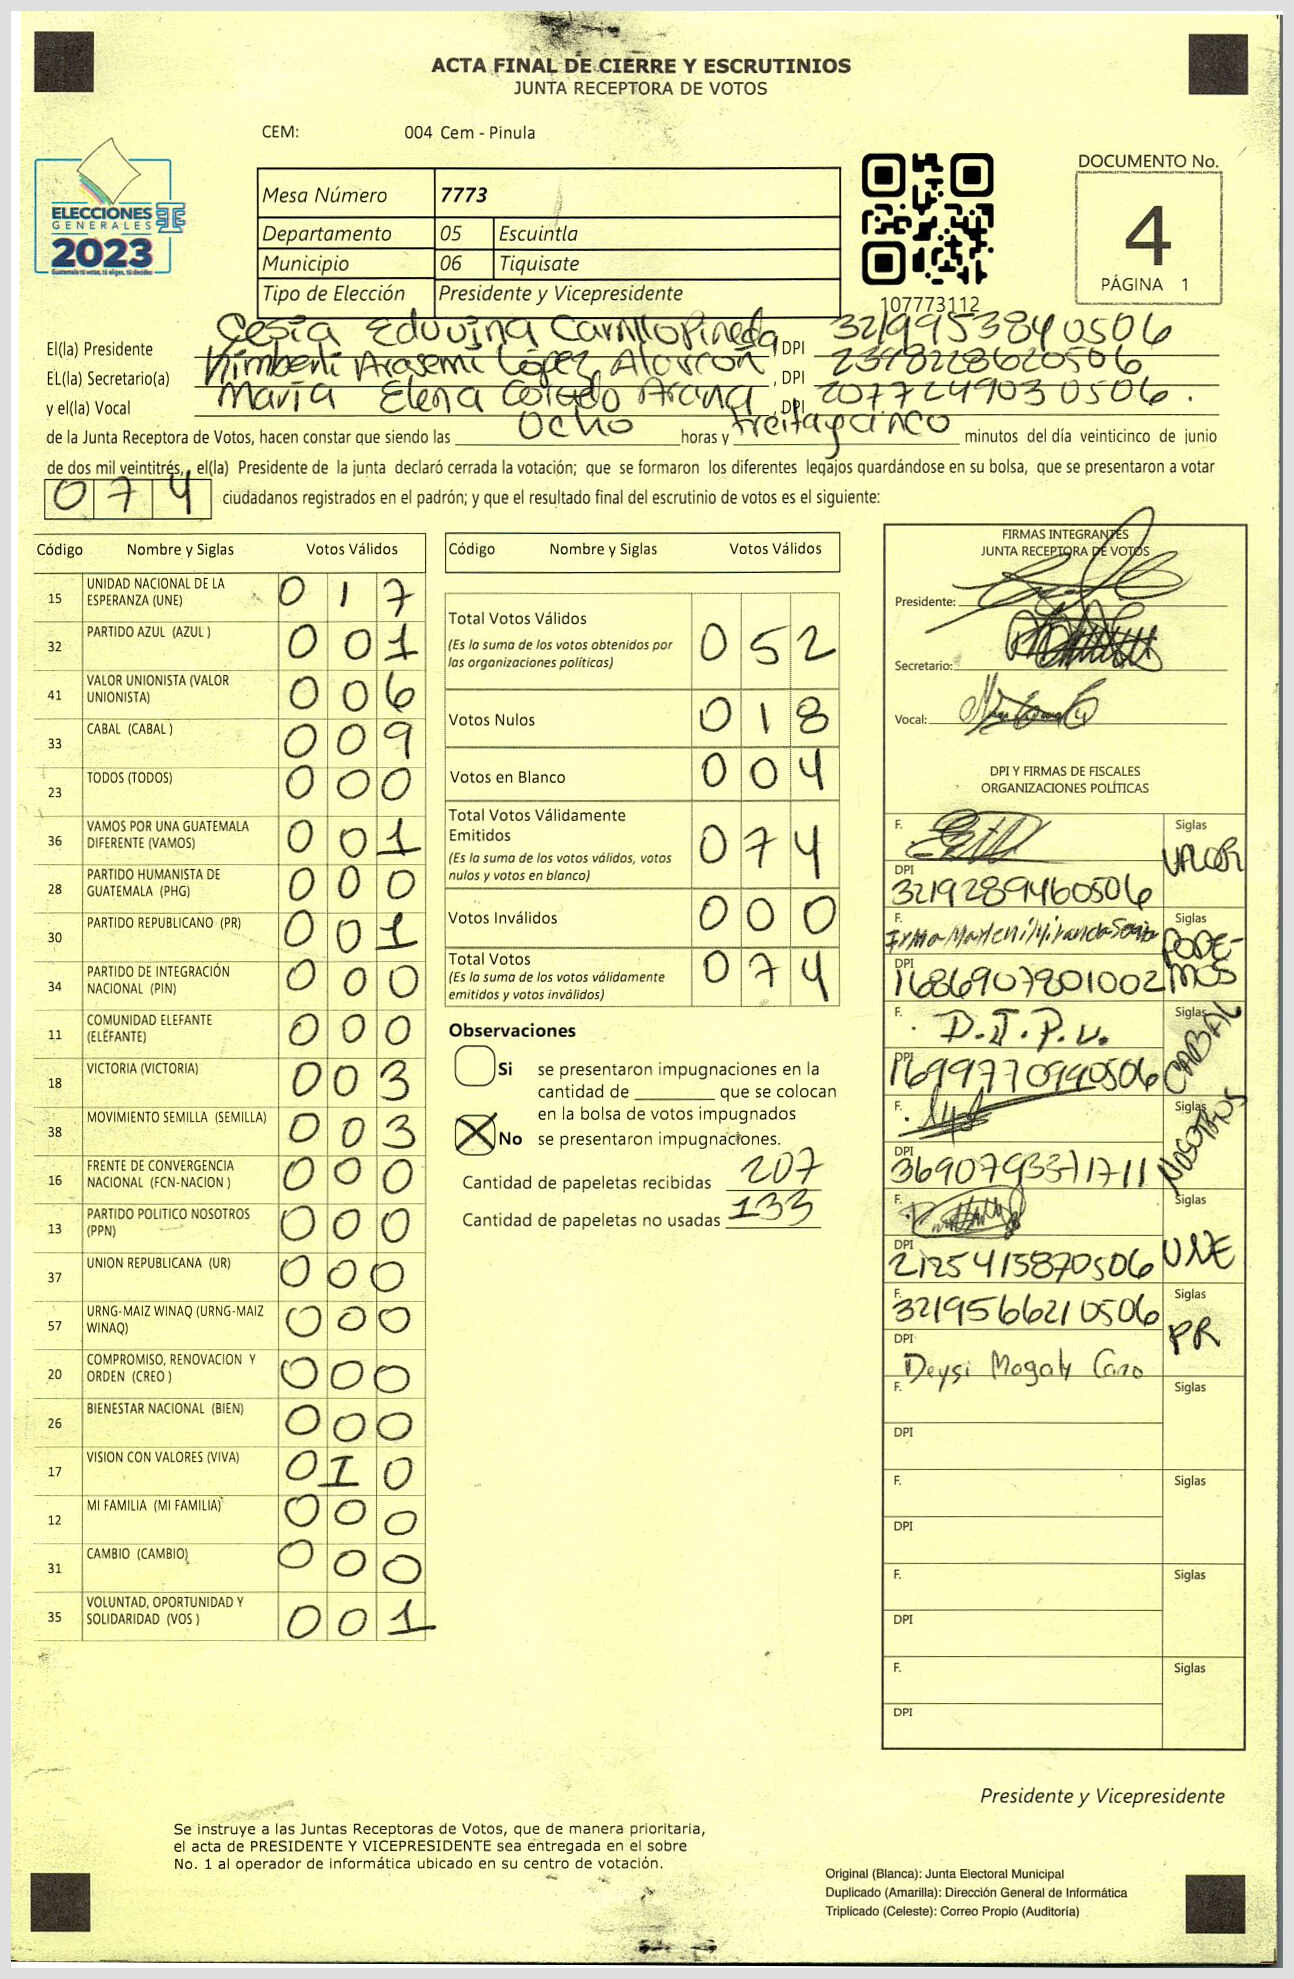 ACTA FINAL DE CIERRE Y ESCRUTINIOS
JUNTA RECEPTORA DE VOTOS
CEM: 004 Cem - Pinula
ELECCIONES
GENERALES
2023
Guatemala tú votas, tú eliges, tú decides
Mesa Número 7773
Departamento 05 Escuintla
Municipio 06 Tiquisate
Tipo de Elección Presidente y Vicepresidente
107773112
DOCUMENTO No.
4
PÁGINA 1
El(la) Presidente Cesia Eduvina Carrillo Pineda, DPI 3219953840506
EL(la) Secretario(a) Kimberli Arasemi López Alarcón, DPI 2398228620506
y el(la) Vocal María Elena Arana, DPI 2077249030506.
de la Junta Receptora de Votos, hacen constar que siendo las Ocho horas y treitaycinco minutos del día veinticinco de junio
de dos mil veintitrés, el(la) Presidente de la junta declaró cerrada la votación; que se formaron los diferentes legajos guardándose en su bolsa, que se presentaron a votar
074 ciudadanos registrados en el padrón; y que el resultado final del escrutinio de votos es el siguiente:
Código Nombre y Siglas Votos Válidos
15 UNIDAD NACIONAL DE LA ESPERANZA (UNE) 017
32 PARTIDO AZUL (AZUL ) 001
41 VALOR UNIONISTA (VALOR UNIONISTA) 006
33 CABAL (CABAL ) 009
23 TODOS (TODOS) 000
36 VAMOS POR UNA GUATEMALA DIFERENTE (VAMOS) 001
28 PARTIDO HUMANISTA DE GUATEMALA (PHG) 000
30 PARTIDO REPUBLICANO (PR) 001
34 PARTIDO DE INTEGRACIÓN NACIONAL (PIN) 000
11 COMUNIDAD ELEFANTE (ELEFANTE) 000
18 VICTORIA (VICTORIA) 003
38 MOVIMIENTO SEMILLA (SEMILLA) 003
16 FRENTE DE CONVERGENCIA NACIONAL (FCN-NACION ) 000
13 PARTIDO POLITICO NOSOTROS (PPN) 000
37 UNION REPUBLICANA (UR) 000
57 URNG-MAIZ WINAQ (URNG-MAIZ WINAQ) 000
20 COMPROMISO, RENOVACION Y ORDEN (CREO ) 000
26 BIENESTAR NACIONAL (BIEN) 000
17 VISION CON VALORES (VIVA) 010
12 MI FAMILIA (MI FAMILIA) 000
31 CAMBIO (CAMBIO) 000
35 VOLUNTAD, OPORTUNIDAD Y SOLIDARIDAD (VOS ) 001
Código Nombre y Siglas Votos Válidos
Total Votos Válidos 052
(Es la suma de los votos obtenidos por
las organizaciones políticas)
Votos Nulos 018
Votos en Blanco 004
Total Votos Válidamente
Emitidos 074
(Es la suma de los votos válidos, votos
nulos y votos en blanco)
Votos Inválidos 000
Total Votos 074
(Es la suma de los votos válidamente
emitidos y votos inválidos)
Observaciones
Si se presentaron impugnaciones en la
cantidad de ________ que se colocan
en la bolsa de votos impugnados
No se presentaron impugnaciones.
Cantidad de papeletas recibidas 207
Cantidad de papeletas no usadas 133
FIRMAS INTEGRANTES
JUNTA RECEPTORA DE VOTOS
Presidente:
Secretario:
Vocal:
DPI Y FIRMAS DE FISCALES
ORGANIZACIONES POLÍTICAS
F. Siglas VALOR
DPI 3219289460506
F. Irma Marleni Miranda Siglas PODE-
MOS
DPI 1686907801002
F. D.J.P.V. Siglas CABAL
DPI 1699770990506
F. Siglas NOSOTROS
DPI 3690793371711
F. Siglas UNE
DPI 2125415870506
F. 3219566210506 Siglas PR
DPI Deysi Magaly Cano
F. Siglas
DPI
F. Siglas
DPI
F. Siglas
DPI
F. Siglas
DPI
Presidente y Vicepresidente
Se instruye a las Juntas Receptoras de Votos, que de manera prioritaria,
el acta de PRESIDENTE Y VICEPRESIDENTE sea entregada en el sobre
No. 1 al operador de informática ubicado en su centro de votación.
Original (Blanca): Junta Electoral Municipal
Duplicado (Amarilla): Dirección General de Informática
Triplicado (Celeste): Correo Propio (Auditoría)